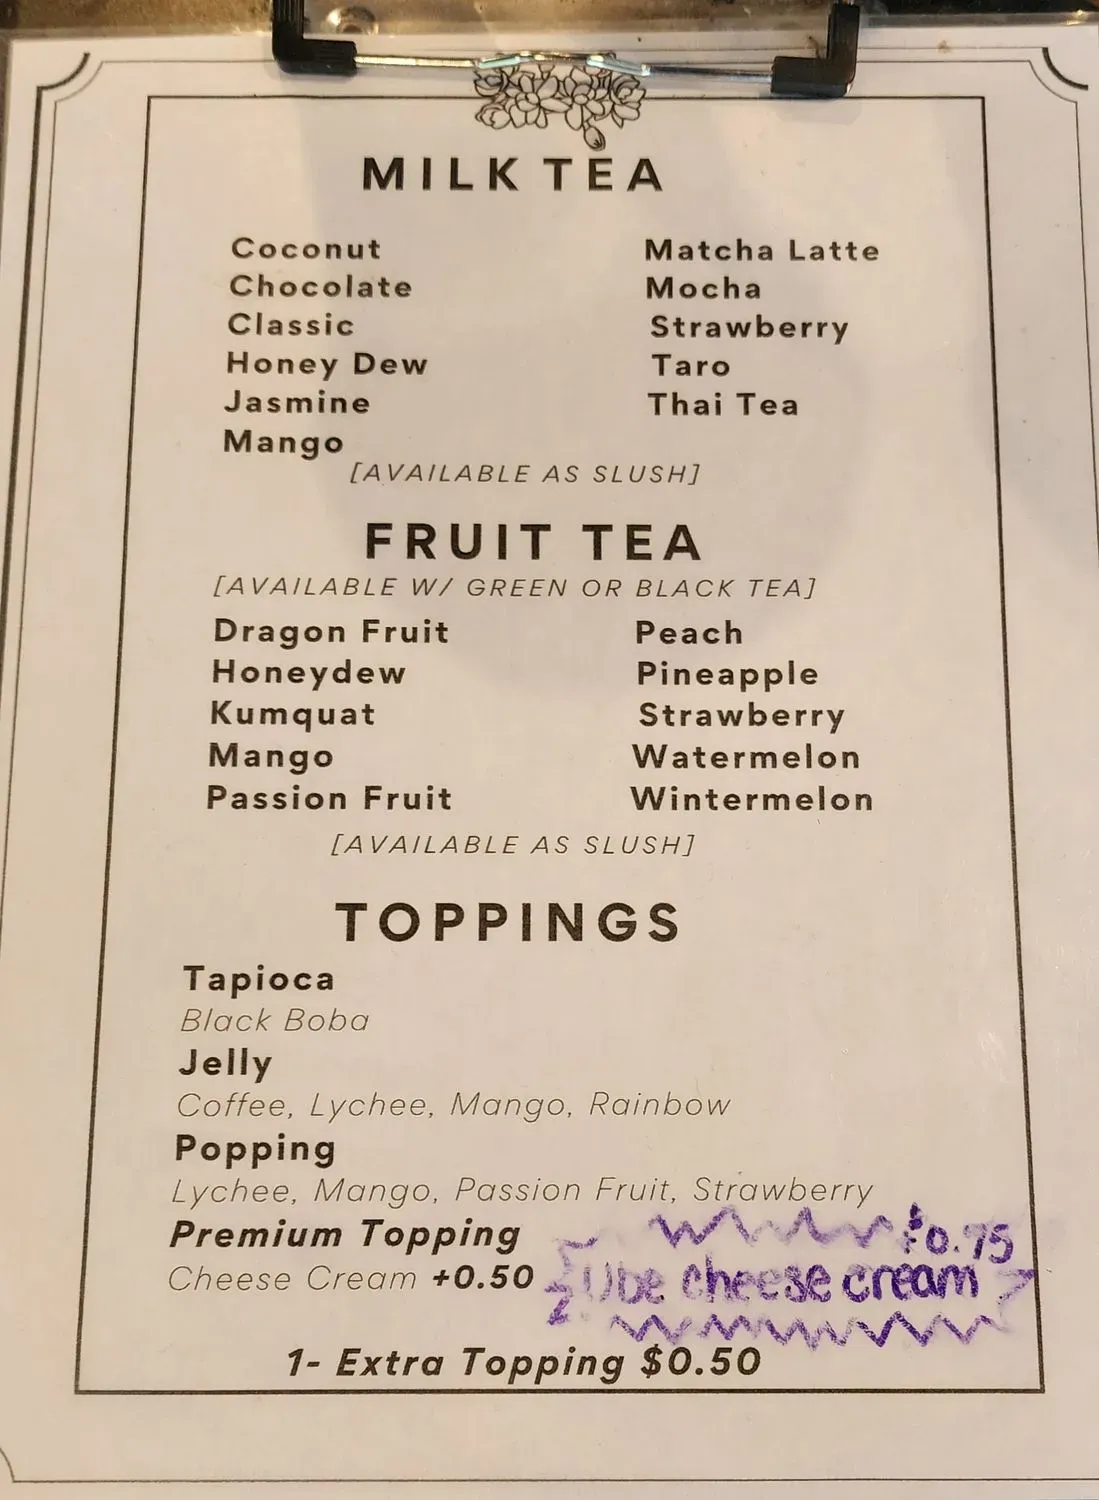 MILK TEA
Coconut
Chocolate
Classic
Honey Dew
Jasmine
Mango
Matcha Latte
Mocha
Strawberry
Taro
Thai Tea
[AVAILABLE AS SLUSH]
FRUIT TEA
[AVAILABLE W/ GREEN OR BLACK TEA]
Dragon Fruit
Honeydew
Kumquat
Mango
Passion Fruit
Peach
Pineapple
Strawberry
Watermelon
Wintermelon
[AVAILABLE AS SLUSH]
TOPPINGS
Tapioca
Black Boba
Jelly
Coffee, Lychee, Mango, Rainbow
Popping
Lychee, Mango, Passion Fruit, Strawberry
Premium Topping
Cheese Cream +0.50
$0.75
Ube cheese cream
1- Extra Topping $0.50